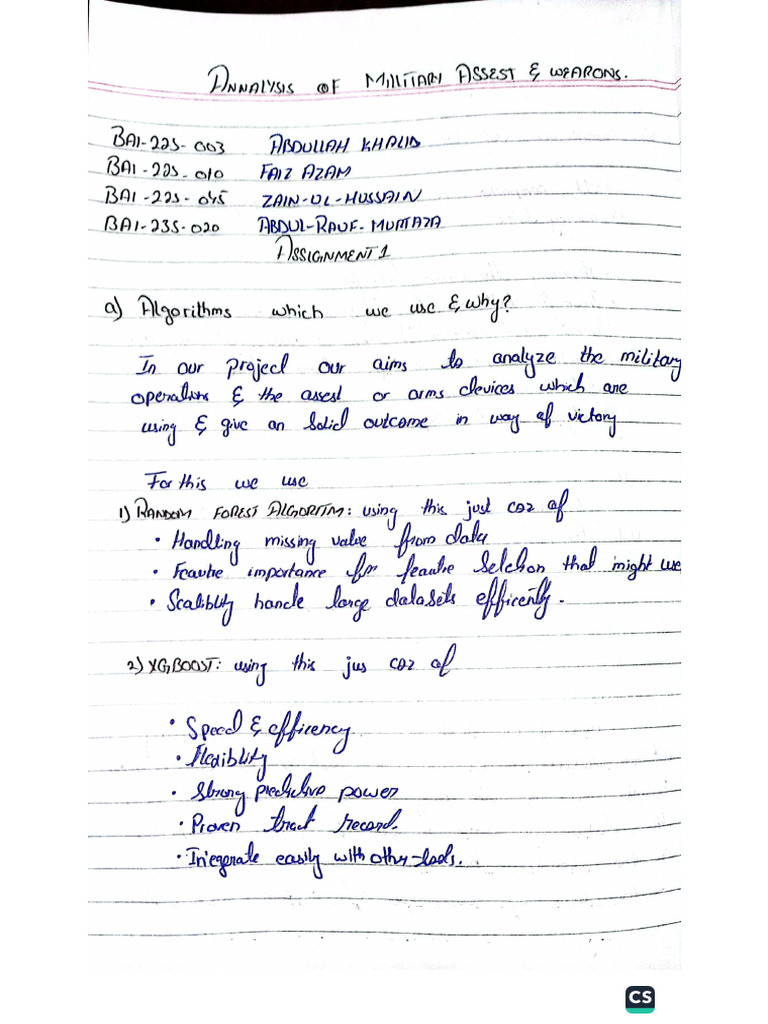 ANNALYSIS OF MILLITARY ASSEST & WEAPONS.
BAI-22S-003 ABDULLAH KHALID
BAI-22S-010 FAIZ AZAM
BAI-22S-045 ZAIN-UL-HUSSAIN
BAI-23S-020 ABDUL-RAUF-MURTAZA
ASSIGNMENT 1
a) Algorithms which we use & why?
In our project our aims to analyze the military
operations & the assest or arms devices which are
using & give an solid outcome in way of victory
For this we use
1) RANDOM FOREST ALGORITM: using this just coz of
• Handling missing value from data
• Feautre importance for feautre Selction that might we
• Scaliblity handle large datasets efficently.
2) XGBOOST: using this jus coz of
• Speed & efficency
• flexiblity
• Strong predictive power
• Proven tract record.
• Intergrate easily with other tools.
CS